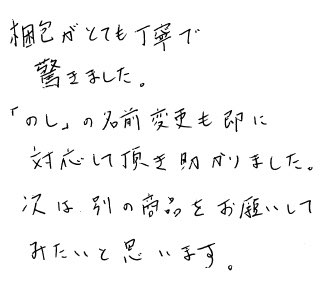 梱包がとても丁寧で
驚きました。
「のし」の名前変更も即に
対応して頂き助かりました。
次は別の商品をお願いして
みたいと思います。